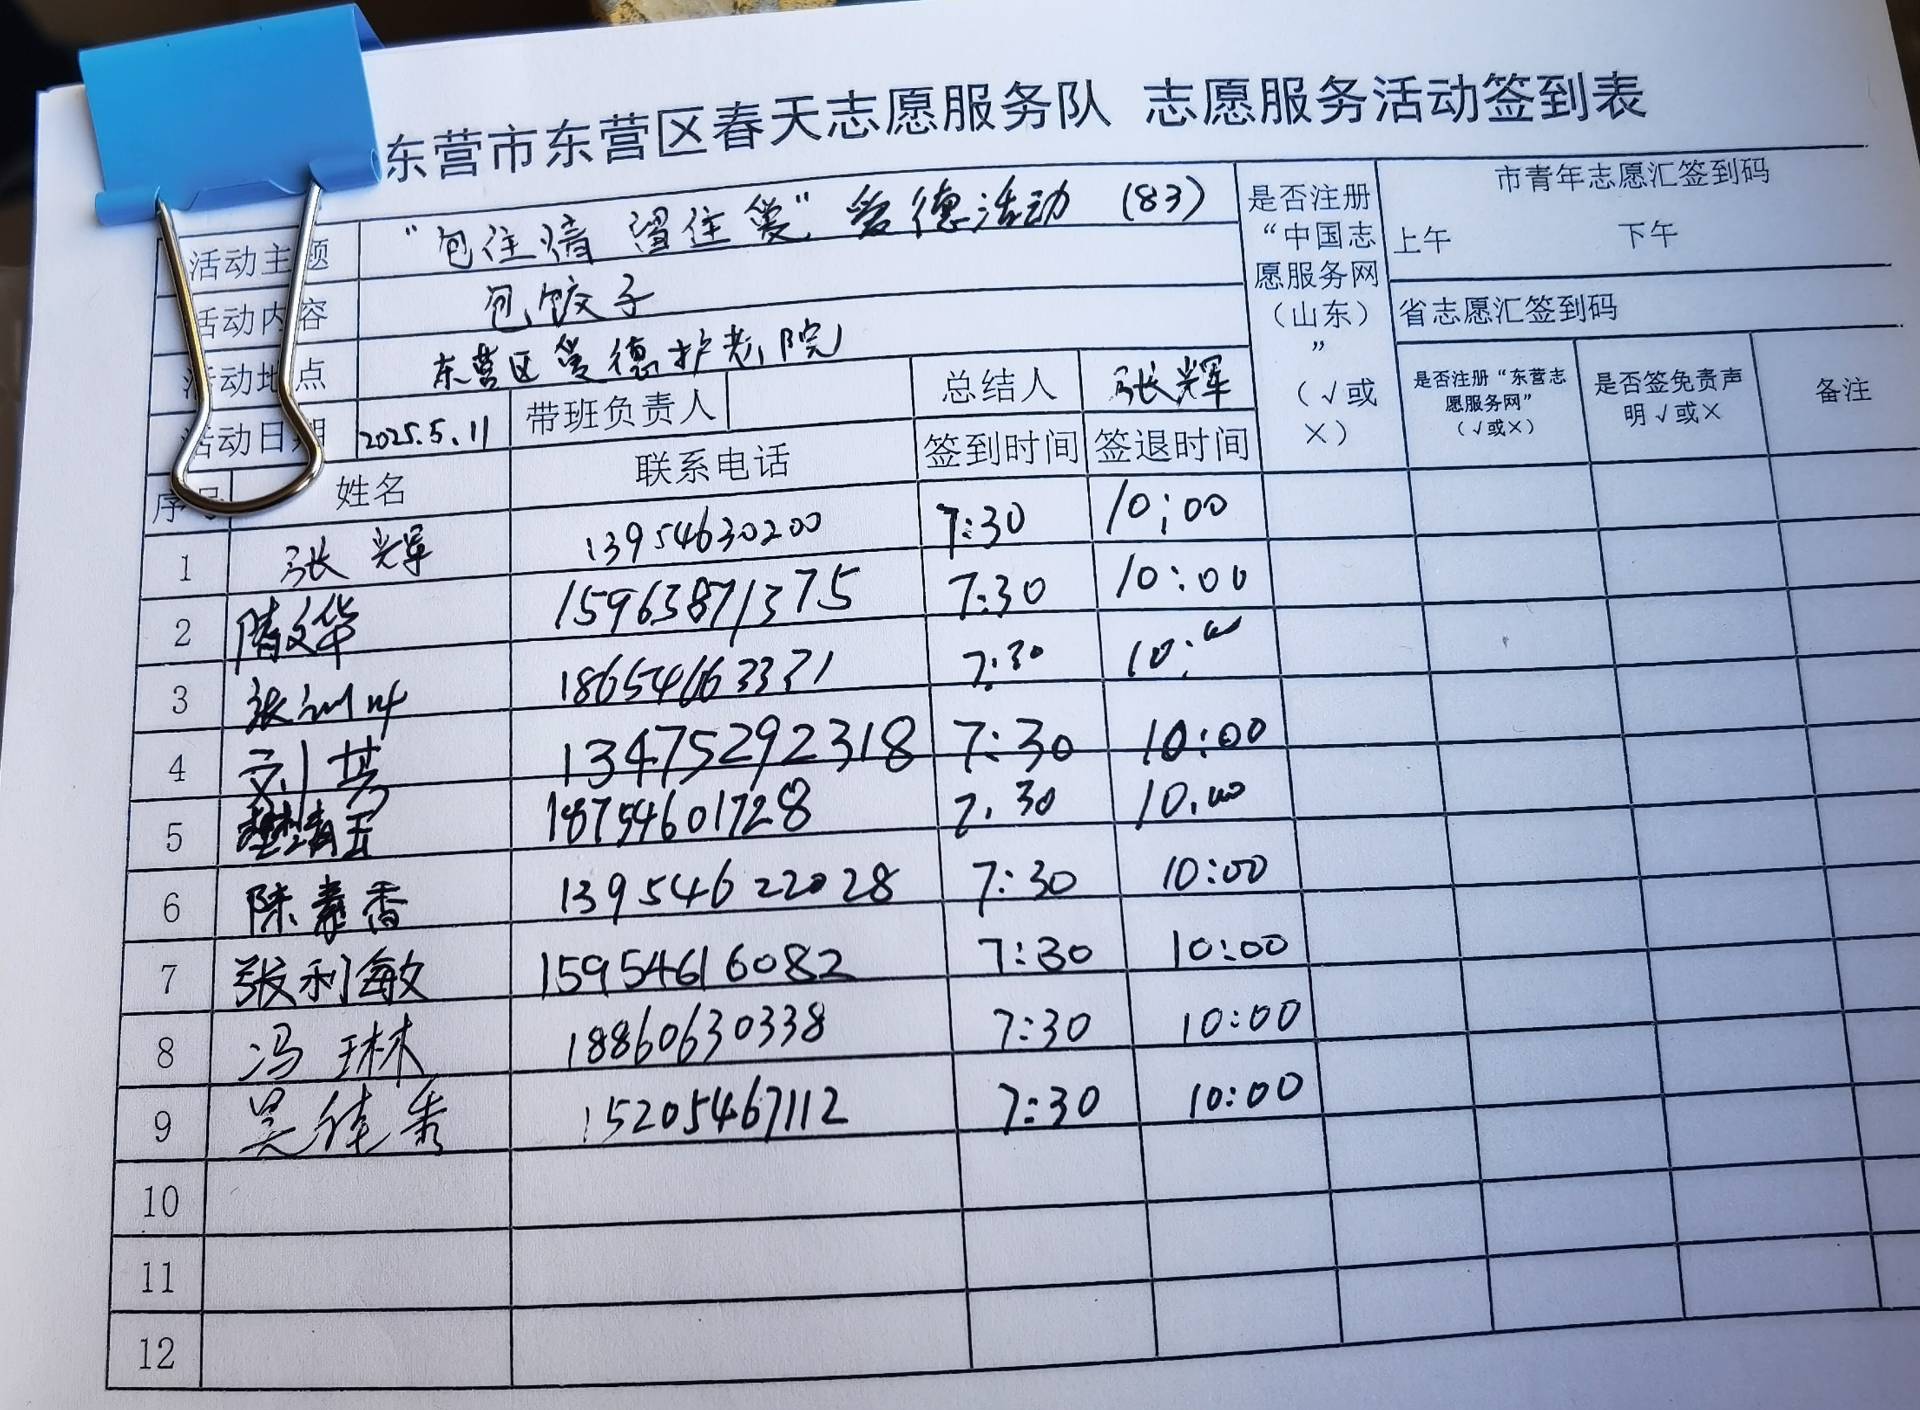 东营市东营区春天志愿服务队 志愿服务活动签到表
活动主题 “包住情 留住爱”爱德活动 (83)
活动内容 包饺子
活动地点 东营区爱德护老院
活动日期 2025.5.11 带班负责人 总结人 张辉
是否注册“中国志愿服务网（山东）”（√或×）
市青年志愿汇签到码
上午 下午
省志愿汇签到码
是否注册“东营志愿服务网”（√或×） 是否签免责声明√或× 备注
序号 姓名 联系电话 签到时间 签退时间
1 张辉 13954630200 7:30 10:00
2 隋文华 15963871375 7:30 10:00
3 张 18654663331 7:30 10:00
4 刘 13475292318 7:30 10:00
5 18754601728 7:30 10:00
6 陈素香 13954622028 7:30 10:00
7 张利敏 15954616082 7:30 10:00
8 冯琳 18860630338 7:30 10:00
9 吴佳秀 15205467112 7:30 10:00
10
11
12